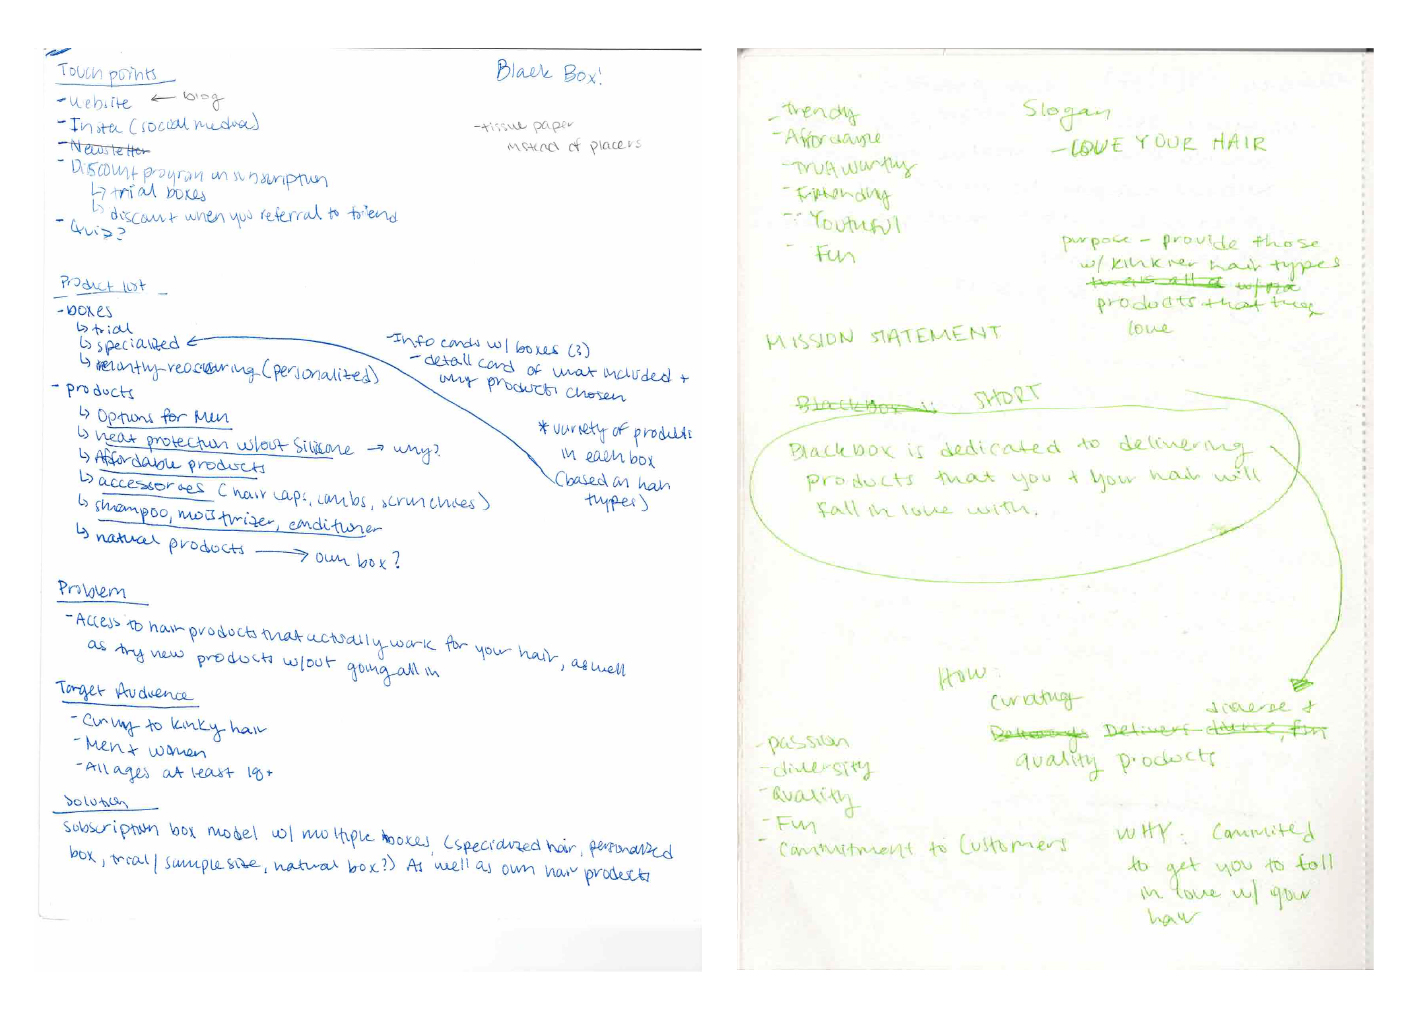 Touch points
- website ← blog
- Insta (social media)
- Newsletter
- Discount program on subscription
↳ trial boxes
↳ discount when you referral to friend
- Quiz?
Black Box!
- tissue paper
instead of placers
Product list
- boxes
↳ trial
↳ specialized
↳ reoccuring (personalized)
- products
↳ Options for Men
↳ heat protection w/out Silicone → why?
↳ Affordable products
↳ accessories (hair caps, combs, scrunchies)
↳ shampoo, moisturizer, conditioner
↳ natural products → own box?
- Info cards w/ boxes (3)
- detail card of what included +
why products chosen
* variety of products
in each box
(based on hair
types)
Problem
- Access to hair products that actually work for your hair, as well
as try new products w/out going all in
Target Audience
- Curly to kinky hair
- Men + women
- All ages at least 18+
Solution
Subscription box model w/ multiple boxes (specialized hair, personalized
box, trial/sample size, natural box?) As well as own hair products
- trendy
- Affordable
- Trustworthy
-
- Youthful
- Fun
Slogan
- LOVE YOUR HAIR
purpose - provide those
w/ kinkier hair types
products that they
love
MISSION STATEMENT
Blackbox is SHORT
Blackbox is dedicated to delivering
products that you + your hair will
fall in love with.
HOW:
curating diverse +
Delivers diverse, fun
quality products
- passion
- diversity
- Quality
- Fun
- Commitment to Customers
WHY: Commited
to get you to fall
in love w/ your
hair